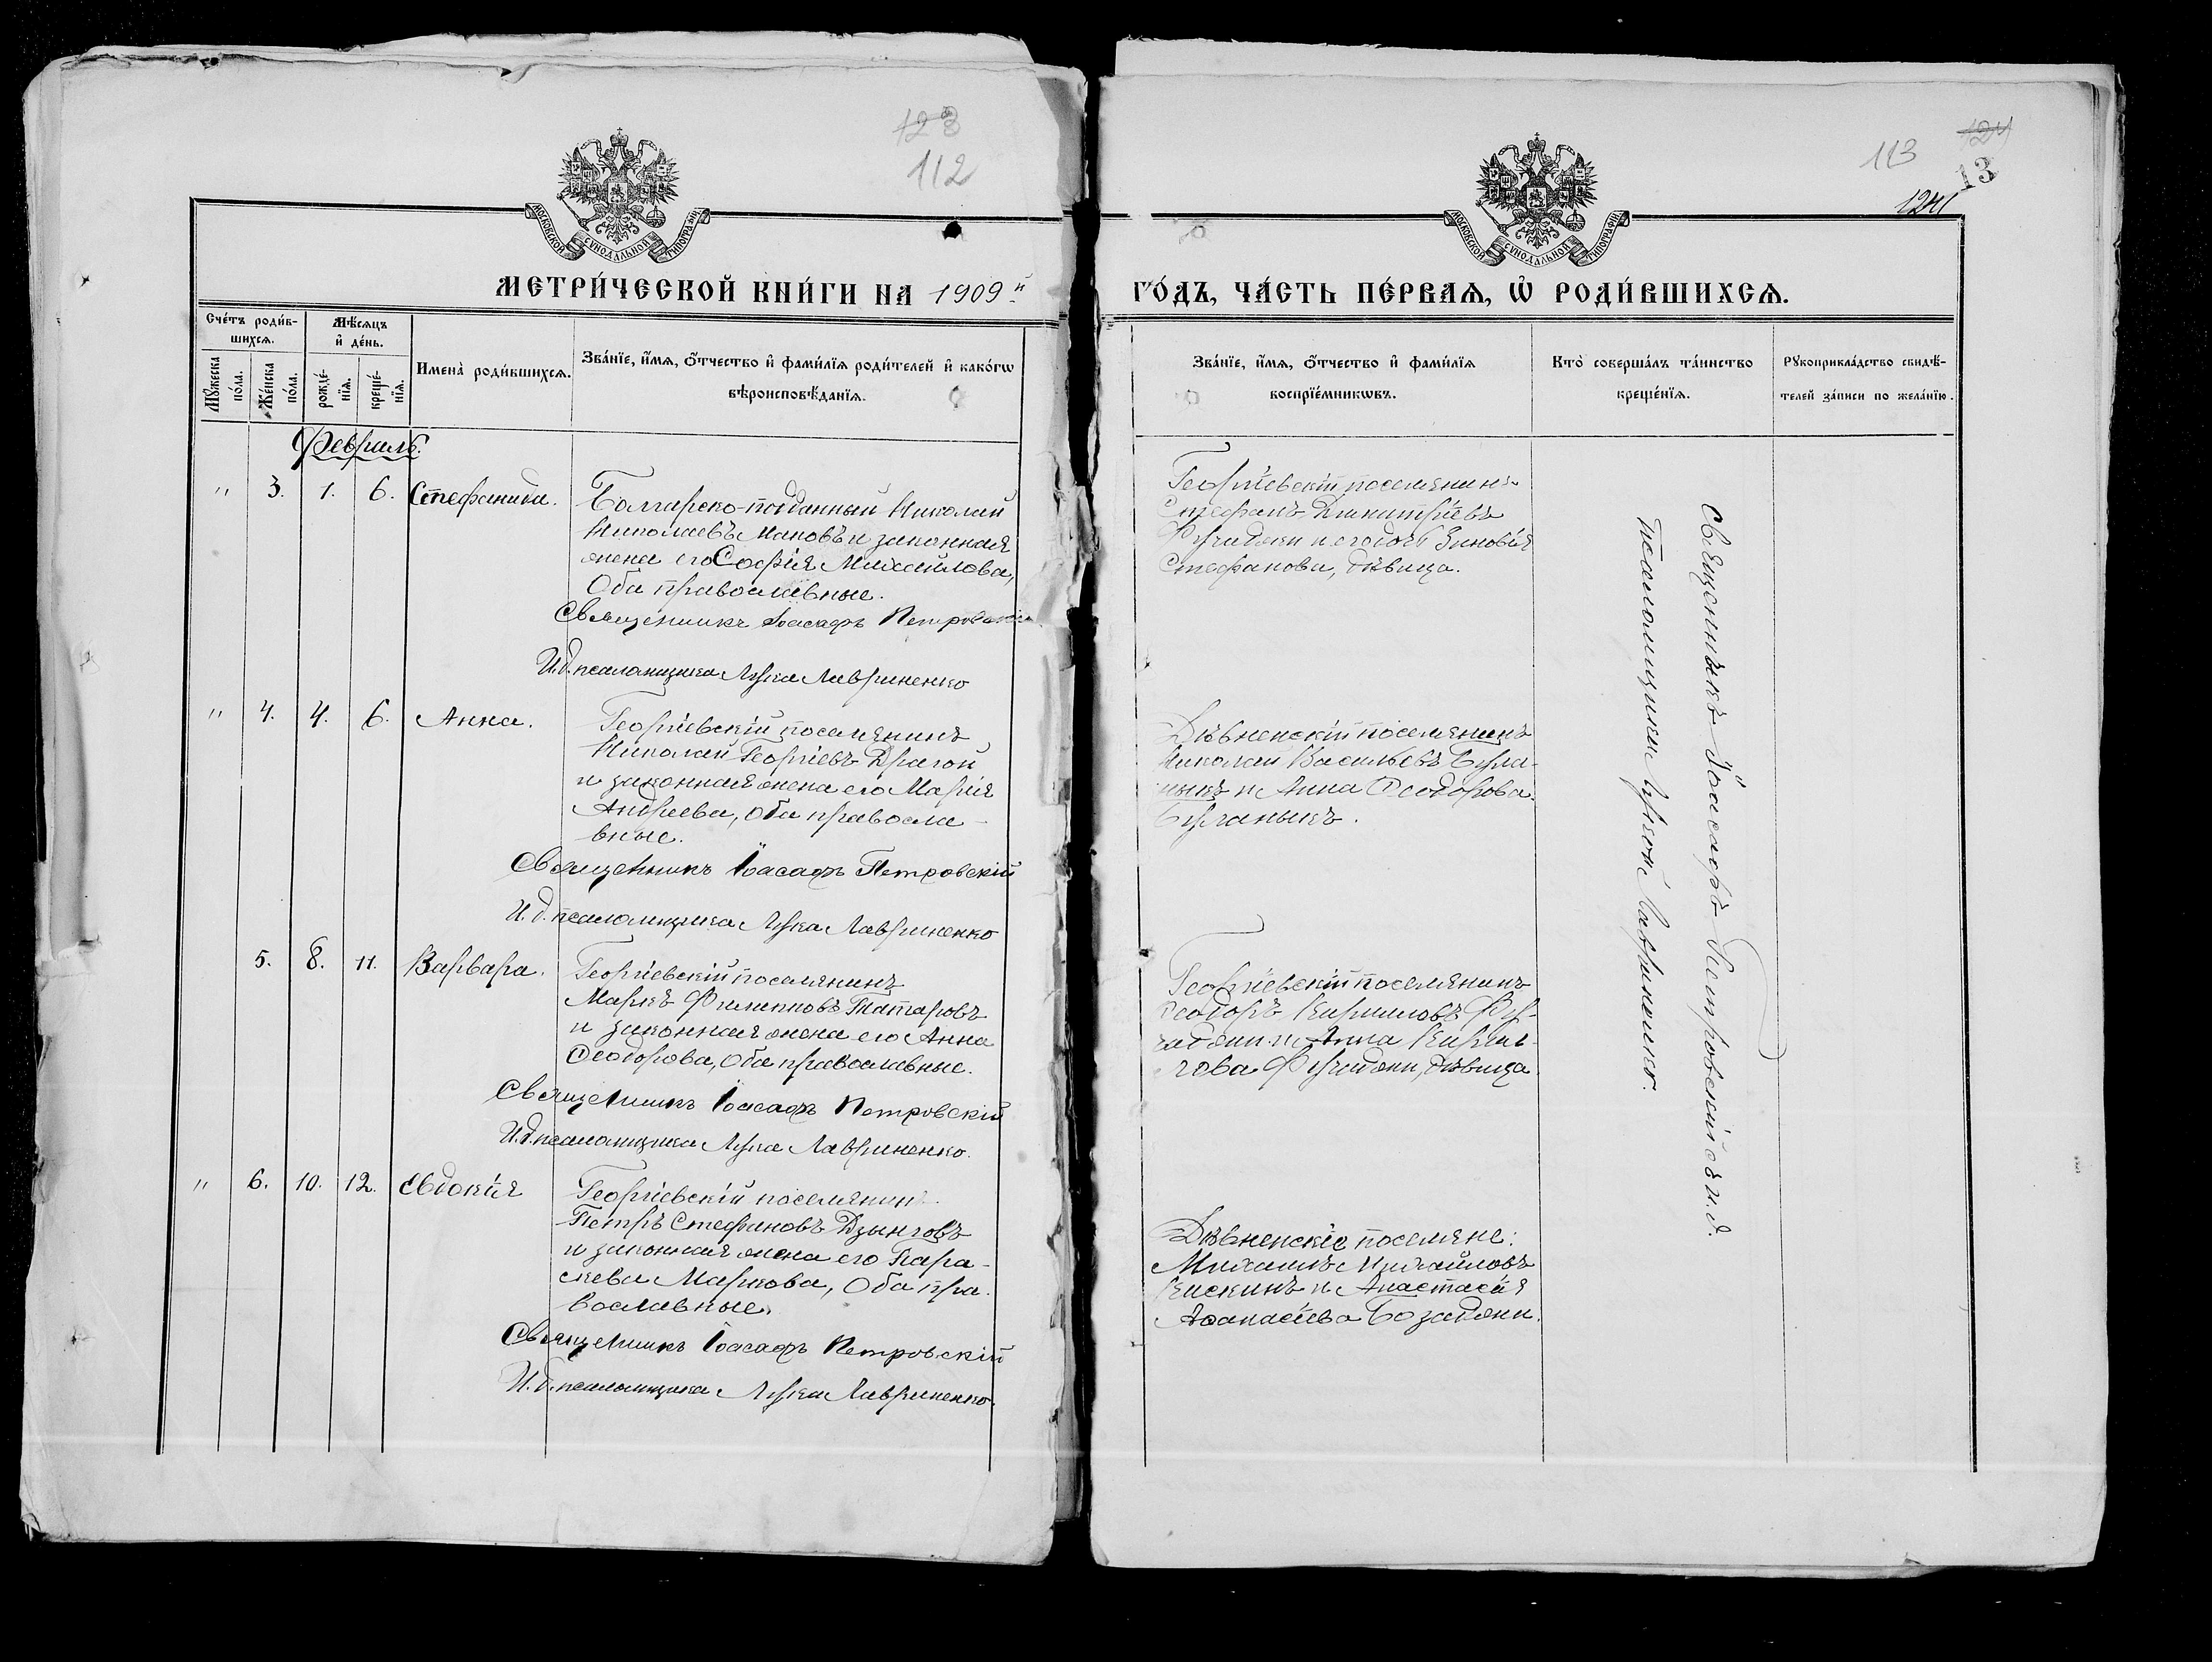 123
112
МОСКОВСКОЙ СѴНОДАЛЬНОЙ ТИПОГРАФІИ
МЕТРИ́ЧЕСКОЙ КНИ́ГИ НА 1909й
Сче́тъ роди́в-
шихсѧ.
Мѣ́сѧцъ
и҆ де́нь.
Мꙋ́жеска
по́ла.
Же́нска
по́ла.
рожде́-
нїѧ.
креще́-
нїѧ.
Имена̀ роди́вшихсѧ.
Зва́нїе, и҆́мѧ, ѻ҆́тчество и҆ фами́лїѧ роди́телей и҆ како́гѡ
вѣроисповѣ́данїѧ.
Февраль.
" 3. 1. 6. Стефанида.
Болгарско-подданный Николай
Николаевъ Мановъ и законная
жена его Софія Михайлова,
Оба православные.
Священникъ Іоасафъ Петровскій
И.д. псаломщика Лука Лавриненко
" 4. 4. 6. Анна.
Георгіевскій поселянинъ
Николай Георгіевъ Драгой
и законная жена его Марія
Андреева, Оба правосла-
вные.
Священникъ Іоасафъ Петровскій
И.д. псаломщика Лука Лавриненко
5. 8. 11. Варвара.
Георгіевскій поселянинъ
Маркъ Филипповъ Татаровъ
и законная жена его Анна
Ѳеодорова, Оба православные.
Священникъ Іоасафъ Петровскій
И.д. псаломщика Лука Лавриненко.
" 6. 10. 12. Евдокія
Георгіевскій поселянинъ
Петръ Стефановъ Дзынговъ
и законная жена его Пара-
скева Маркова, Оба пра-
вославные.
Священникъ Іоасафъ Петровскій
И.д. псаломщика Лука Лавриненко.
113
124
13
124
МОСКОВСКОЙ СѴНОДАЛЬНОЙ ТИПОГРАФІИ
ГО́ДЪ, ЧА́СТЬ ПЕ́РВАѦ, Ѡ҆ РОДИ́ВШИХСѦ.
Зва́нїе, и҆́мѧ, ѻ҆́тчество и҆ фами́лїѧ
воспрїе́мникѡвъ.
Кто̀ соверша́лъ та́инство
креще́нїѧ.
Рꙋкоприкла́дство свидѣ́-
телей за́писи по жела́нїю.
Георгіевскій поселянинъ
Стефанъ Димитріевъ
Фучаджи и его дочь Зиновія
Стефанова, дѣвица.
Дѣвненскій поселянинъ
Николай Васильевъ
и Анна Ѳеодорова
Георгіевскій поселянинъ
Ѳеодоръ Кирилловъ Фу-
чаджи и Анна Кирил-
лова Фучиджи, дѣвица
Дѣвненскіе поселяне:
Михаилъ Михайловъ
Кискинъ и Анастасія
Аѳанасіева Бозаджи.
Священникъ Іоасафъ Петровскій съ и.д.
Псаломщикомъ Лукою Лавриненко.